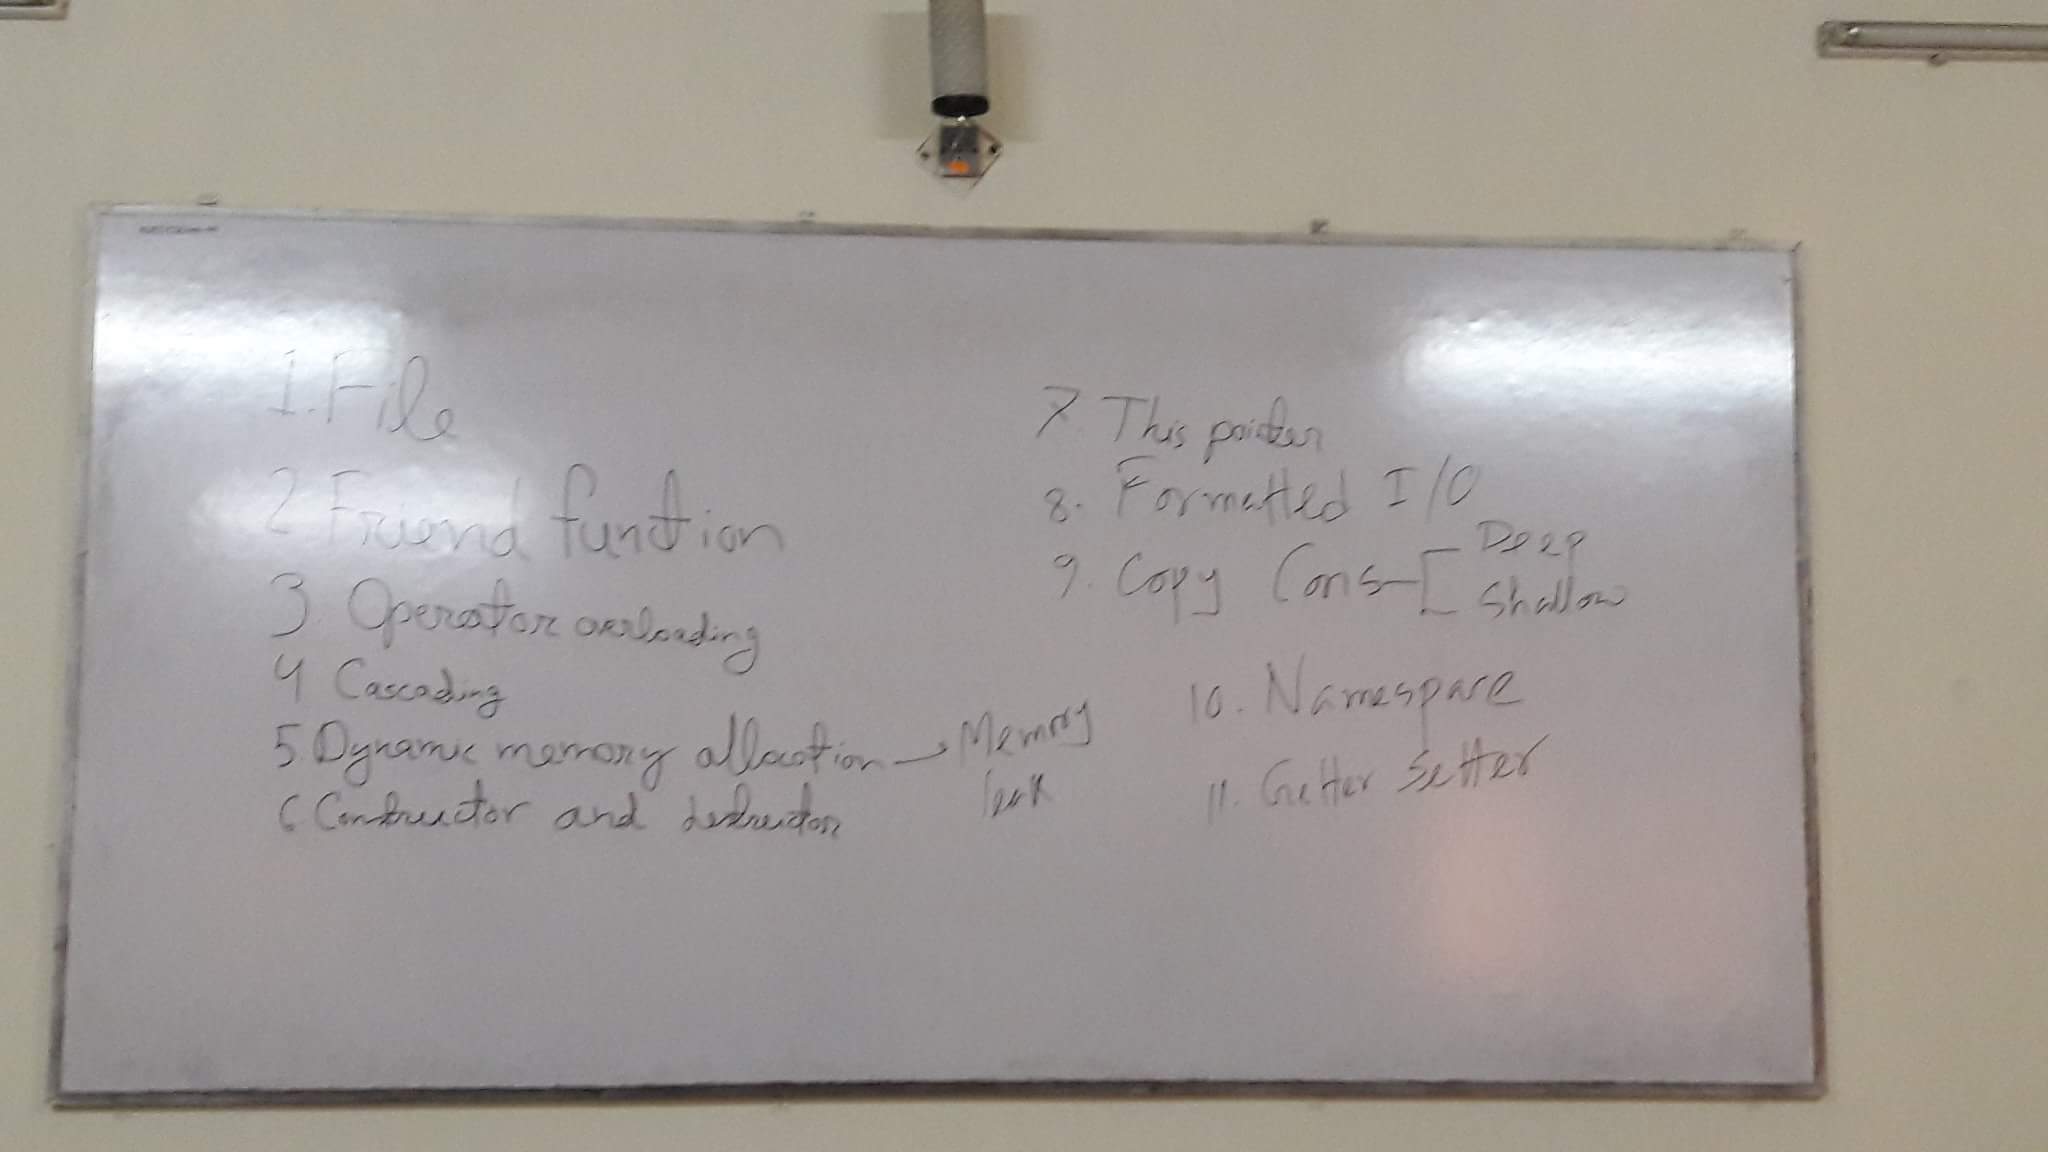 1. File
2 Friend function
3 Operator overloading
4 Cascading
5 Dynamic memory allocation → Memory
leak
6 Constructor and destructor
7. This pointer
8. Formatted I/O
9. Copy Cons Deep
Shallow
10. Namespace
11. Getter Setter